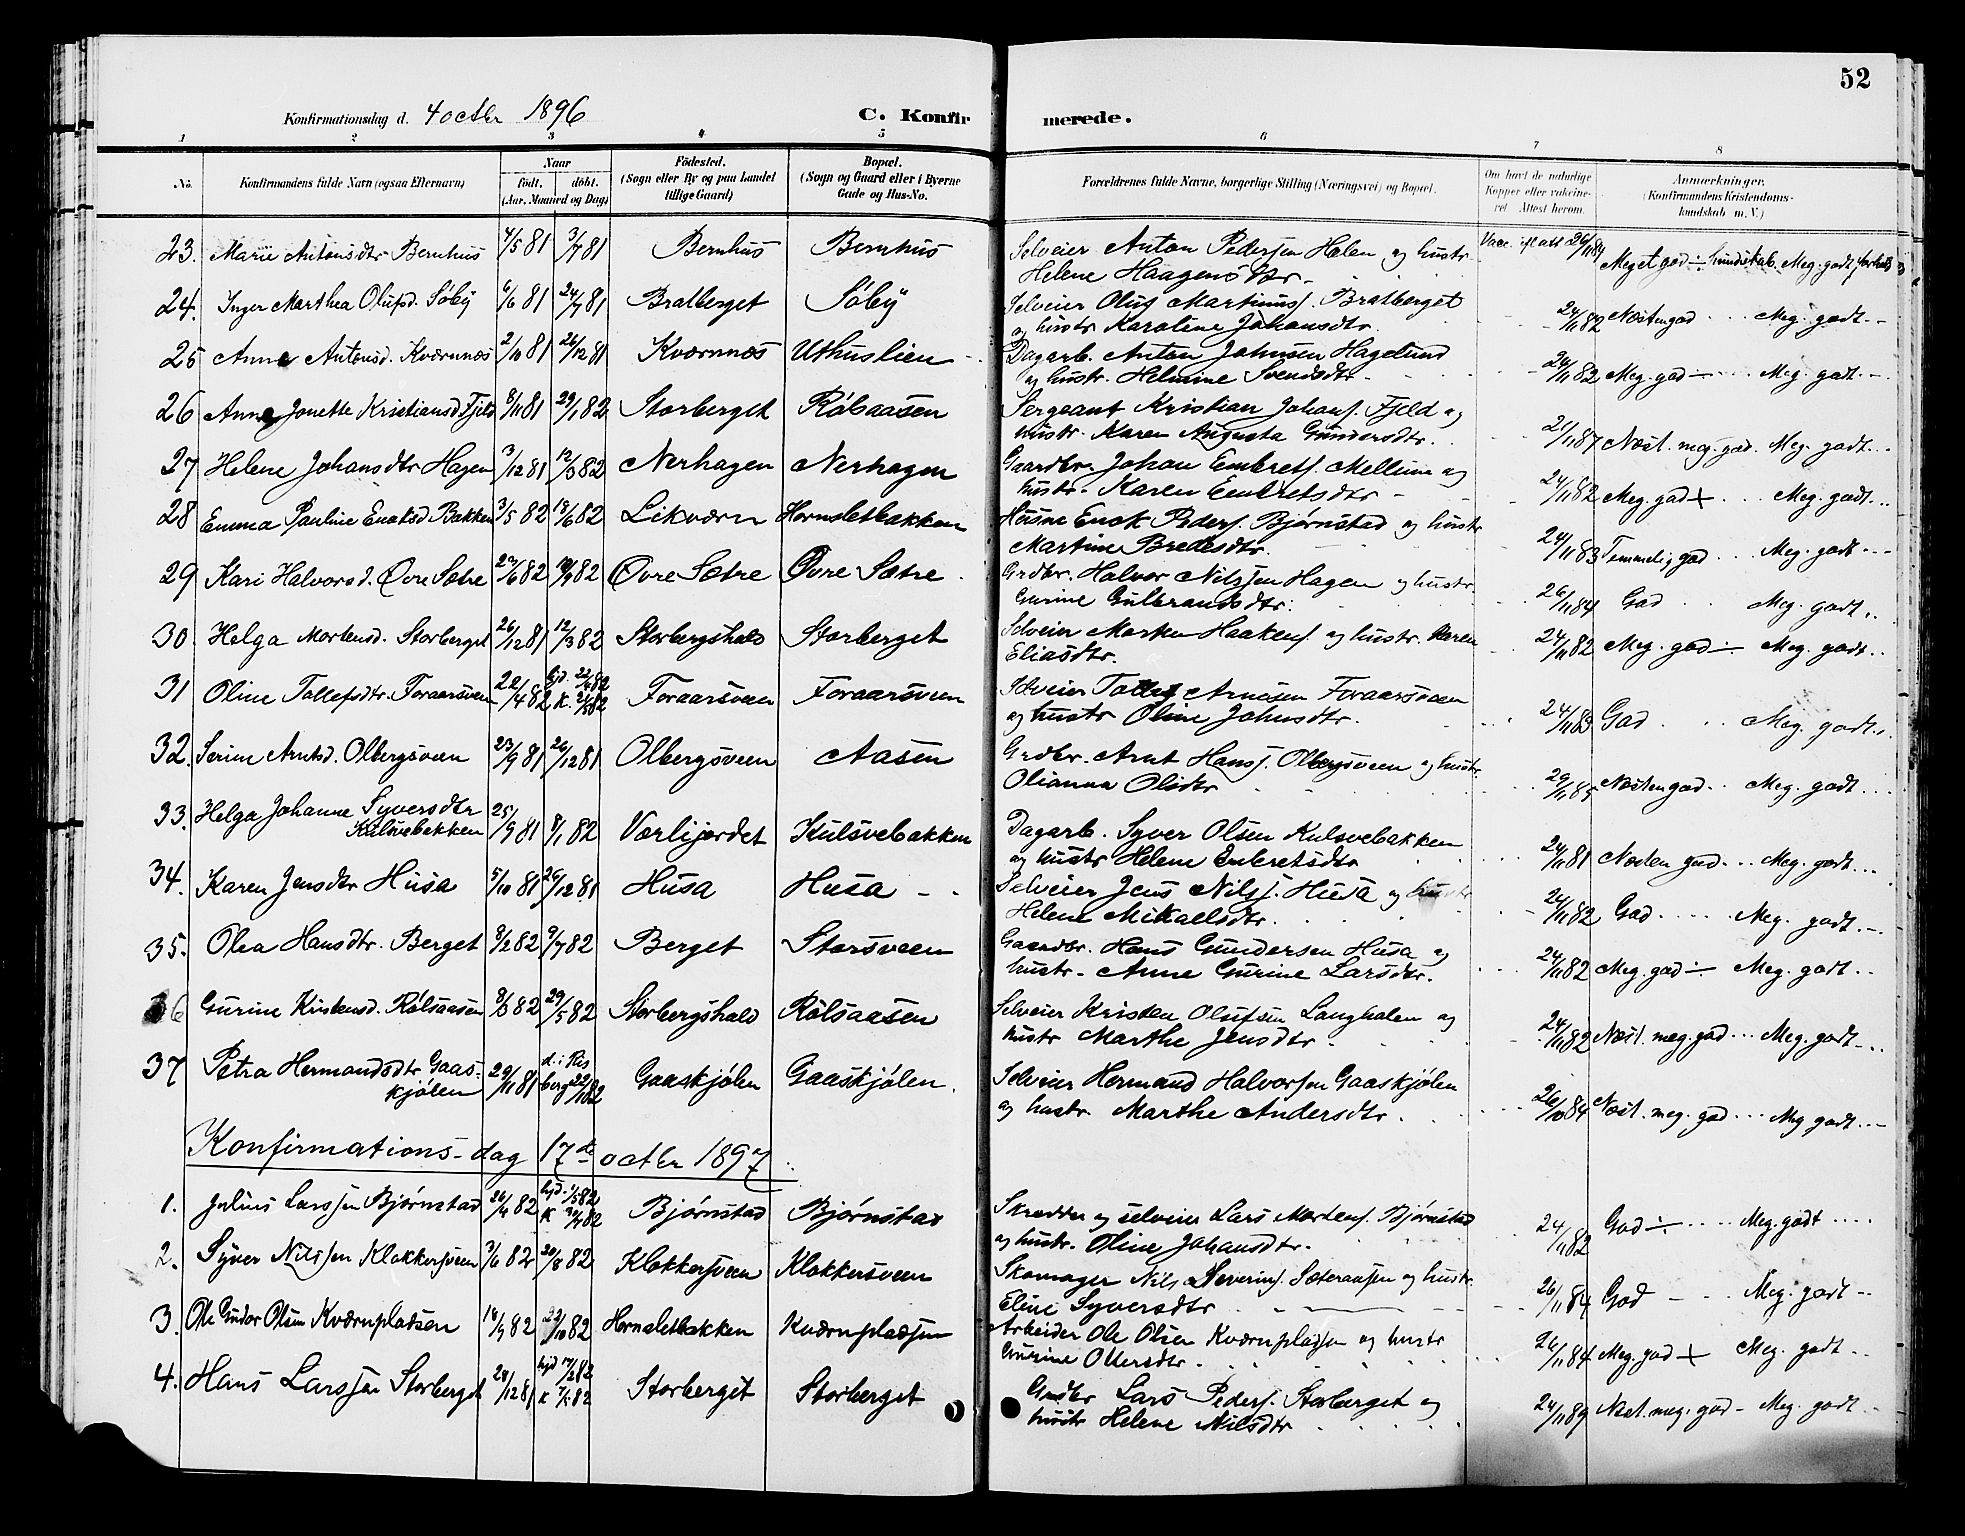 52
Konfirmationsdag d. 4 octbr 1896 C. Konfirmerede.
1 2 3 4 5 6 7 8
No. Konfirmandens fulde Navn (ogsaa Efternavn) Naar födt. döbt. (Aar, Maaned og Dag) Födested. (Sogn eller By og paa Landet tillige Gaard) Bopæl. (Sogn og Gaard eller i Byerne Gade og Hus-No. Forældrenes fulde Navne, borgerlige Stilling (Næringsvei) og Bopæl. Om havt de naturlige Kopper eller vakcineret. Attest herom. Anmærkninger. (Konfirmandens Kristendomskundskab m. V.)
23. Marie Antonsdtr Bernhus 4/5 81 3/7 81 Bernhus Bernhus Selveier Anton Pedersen Halen og hustr. Vacc. ifl att 26/11 84 Meget god ÷ kundskab. Meg. godt forhold
Helene Haagensdtr.
24. Inger Marthea Olufsd. Søby 6/6 81 24/7 81 Bratberget Søby Selveier Oluf Martinus. Bratberget 24/11 82 Næsten god Meg. godt
og hustr Karoline Johansdtr.
25 Anne Antonsd. Kværnnæs 2/10 81 26/12 81 Kværnnæs Uthuslien Dagarb. Anton Johnsen Hagelund 24/11 82 Meg. god ÷ Meg. godt
og hustr. Helmine Svendsdtr.
26 Anne Jonette Kristiansd Fjeld 8/11 81 29/1 82 Storberget Røbaasen Sergeant Kristian Johans. Fjeld og 21/11 87 Næst. meg. god. Meg. godt
hustr. Karen Augusta Gundersdtr.
27 Helene Johansdtr Hagen 3/12 81 12/3 82 Nerhagen Nerhagen Gaardbr. Johan Embrets. Mellum og 24/11 82 Meg. god + Meg. godt
hustr. Karen Embretsdtr
28 Emma Pauline Enoksd Bakken 3/5 82 18/6 82 Likværn Hornsletbakken Husmd Enok Peders. Bjørnstad og hustr 24/11 83 Temmelig god Meg. godt
Martine Bredesdtr.
29 Kari Halvorsd. Øvre Sætre 27/6 82 /9 82 Øvre Sætre Øvre Sætre Grdbr. Halvor Nilssen Hagen og hustr. 26/11 84 God Meg. godt
Gurine Gulbrandsdtr.
30 Helga Mortensd. Storberget 26/12 81 12/3 82 Storbergshald Storberget Selveier Morten Haakens. og hustr. Karen 24/11 82 Meg. god ÷ Meg. godt
Eliasdtr.
31 Oline Tollefsdtr. Foraarsveen 22/4 82 hjd. 22/4 82 K. 21/5 82 Foraarsveen Foraarsveen Selveier Tollef Arnesen Foraarsveen 24/11 83 God Meg. godt
og hustr Oline Johnsdtr.
32. Serine Arntsd. Olbergsveen 23/9 81 26/12 81 Olbergsveen Aasen Grdbr. Arnt Hanss. Olbergsveen og hustr. 29/11 85 Næsten god Meg. godt
Olianna Olsdtr
33. Helga Johanne Syversdtr Kulsvebakken 25/9 81 8/1 82 Værlijordet Kulsvebakken Dagarb. Syver Olsen Kulsvebakken 24/11 81 Næsten god Meg. godt
og hustr Helene Embretsdtr
34. Karen Jensdtr Husa 5/10 81 26/12 81 Husa Husa Selveier Jens Nilss. Husa og hustr 24/11 82 God Meg. godt
Helene Mikaelsdtr.
35. Olea Hansdtr. Berget 8/2 82 9/7 82 Berget Storsveen Gaardbr. Hans Gundersen Husa og 24/11 82 Meg. god ÷ Meg. godt
hustr. Anne Gurine Larsdtr.
36 Gurine Kristensd. Rølsaasen 8/3 82 29/5 82 Storbergshald Rølsaasen Selveier Kristen Olufsen Langhalen og 24/11 82 Næst. meg. god Meg. godt
hustr Marthe Jensdtr
37 Petra Hermandsdtr Gaaskjølen 29/11 81 d. i Risberg 22/1 82 Gaaskjølen Gaaskjølen Selveier Hermand Halvorsen Gaaskjølen 26/10 84 Næst. meg. god Meg godt
og hustr. Marthe Andersdtr
Konfirmations-dag 17de octbr 1897
1. Julius Larssen Bjørnstad 26/4 82 hjd. 1/5 82 K 82 Bjørnstad Bjørnstad Skrædder og selveier Lars Mortens. Bjørnstad 24/11 82 God ÷ Meg. godt
og hustr. Oline Johansdtr.
2. Syver Nilssen Klokkersveen 3/6 82 20/8 82 Klokkersveen Klokkersveen Skomager Nils Severins. Sæteraasen og hustr. 26/11 84 God Meg. godt
Eline Syversdtr
3. Ole Gudor Olsen Kværnpladsen 14/9 82 22/10 82 Hornsletbakken Kværnpladsen Arbeider Ole Olsen Kværnpladsen og hustr 26/11 84 Meg. god + Meg. godt
Gurine Ottersdtr.
4. Hans Larssen Storberget 24/12 81 hjd 82 K 82 Storberget Storberget Grdbr Lars Peders. Storberget og 24/11 89 Næst. meg. god Meg. godt
hustr Helene Nilsdtr